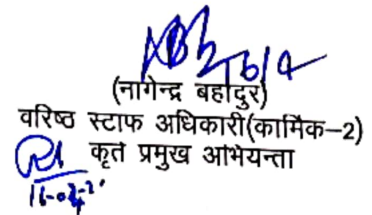 (नागेन्द्र बहादुर)
वरिष्ठ स्टाफ अधिकारी(कार्मिक–2)
कृते प्रमुख अभियन्ता